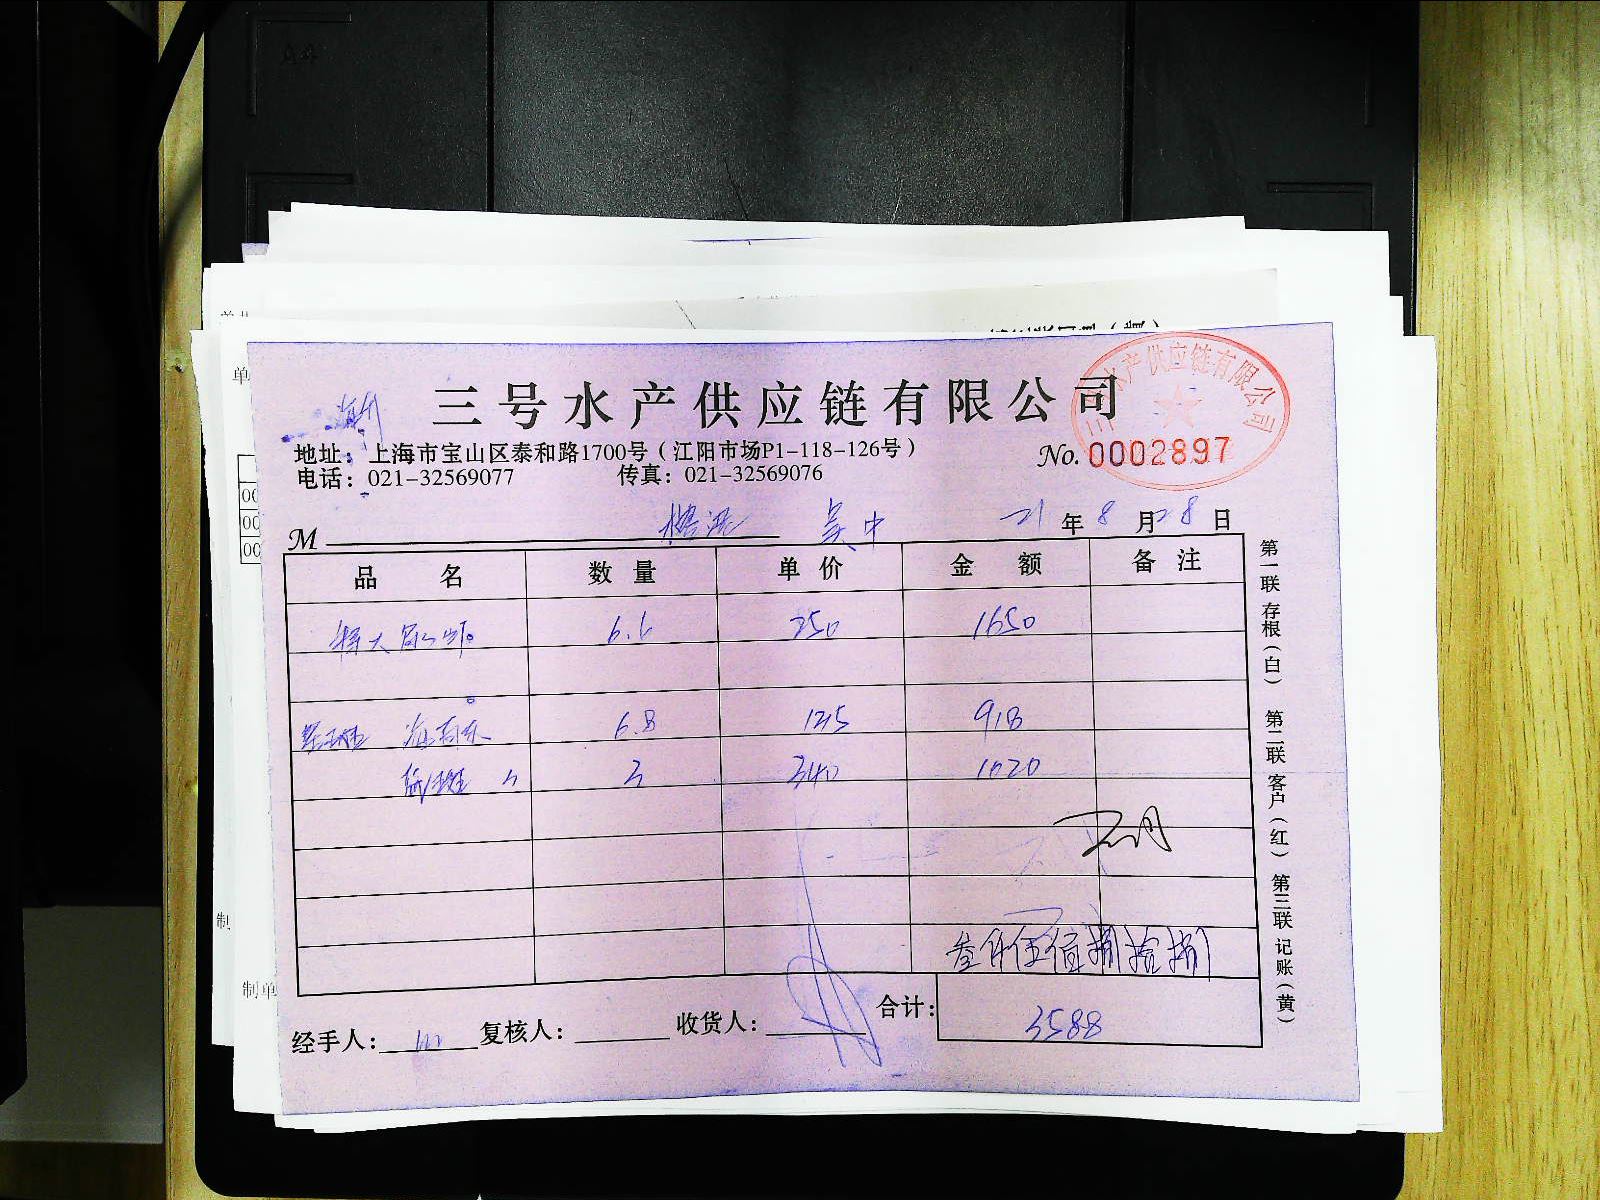 三号水产供应链有限公司
三号水产供应链有限公司
地址：上海市宝山区泰和路1700号（江阳市场P1-118-126号）
No. 0002897
电话：021-32569077 传真：021-32569076
M 吴中 21年8月28日
品名 数量 单价 金额 备注
特大 250 1650
6.8 135 918
3 340 1020
叁仟伍佰捌拾捌
合计：3588
经手人： 复核人： 收货人：
第一联 存根（白） 第二联 客户（红） 第三联 记账（黄）
单
00
00
00
制
制单